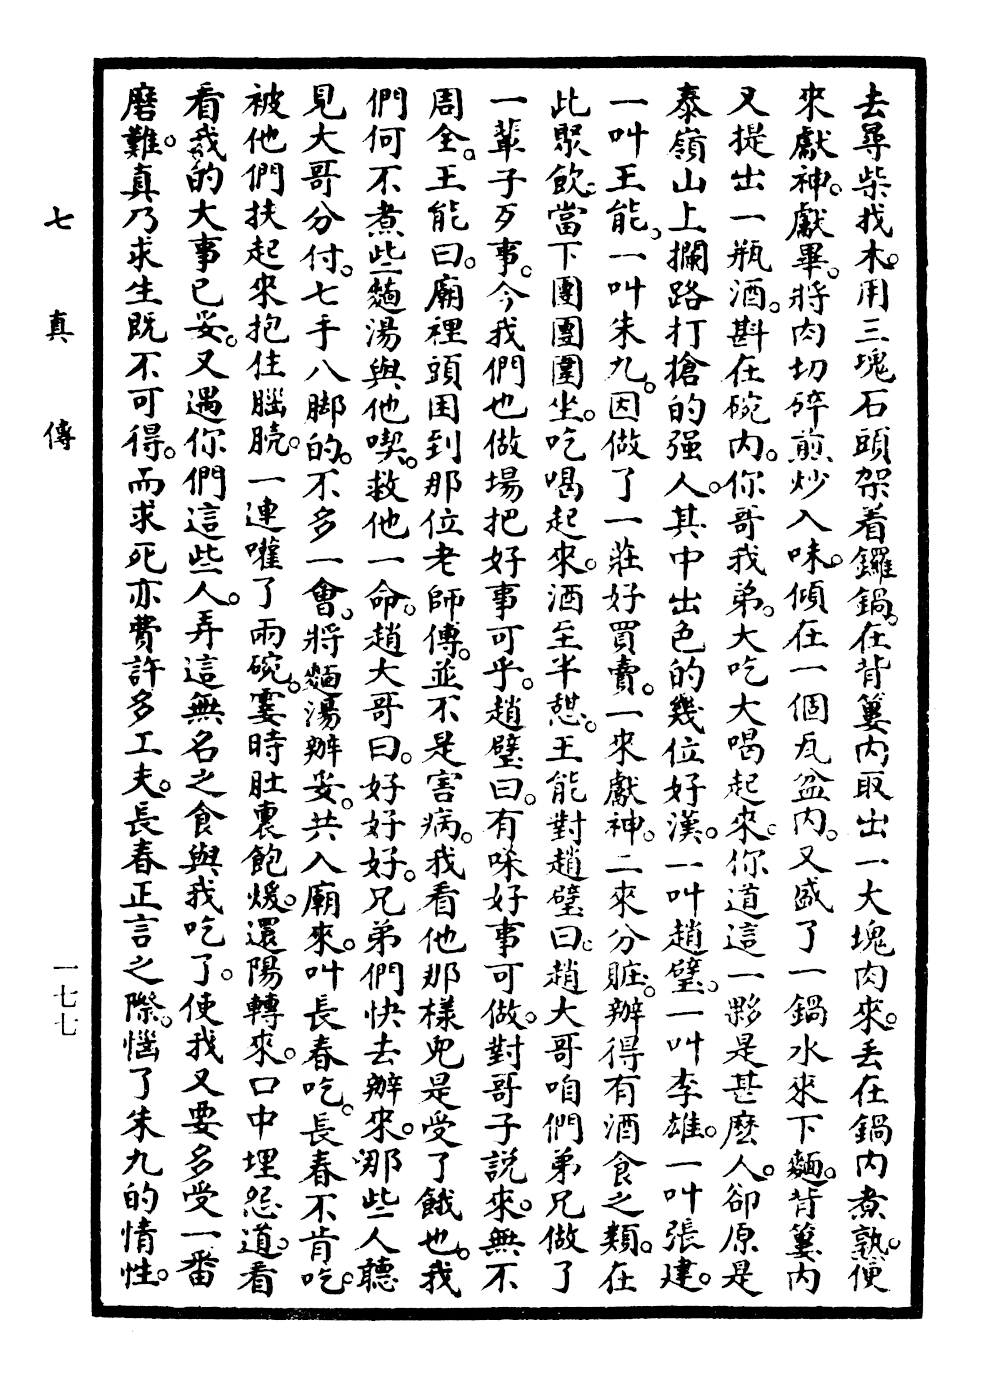 去尋柴找木。用三塊石頭架着鑼鍋。在背簍內取出一大塊肉來。丢在鍋內煮熟。便
來獻神。獻畢。將肉切碎煎炒入味。傾在一個瓦盆內。又盛了一鍋水來下麵。背簍內
又提出一瓶酒。斟在碗內。你哥我弟。大吃大喝起來。你道這一夥是甚麼人。卻原是
泰嶺山上攔路打搶的强人。其中出色的幾位好漢。一叫趙璧。一叫李雄。一叫張建。
一叫王能。一叫朱九。因做了一莊好買賣。一來獻神。二來分賍。辦得有酒食之類。在
此聚飲。當下團團圍坐。吃喝起來。酒至半憇。王能對趙璧曰。趙大哥咱們弟兄做了
一輩子歹事。今我們也做場把好事可乎。趙璧曰。有哚好事可做。對哥子説來。無不
周全。王能曰。廟裡頭困到那位老師傅。並不是害病。我看他那樣兒是受了餓也。我
們何不煮些麵湯與他喫。救他一命。趙大哥曰。好好好。兄弟們快去辦來。那些人聽
見大哥分付。七手八脚的。不多一會。將麵湯辦妥。共入廟來。叫長春吃。長春不肯吃。
被他們扶起來抱住腦脘。一連嚾了兩碗。霎時肚裏飽煖。還陽轉來。口中埋怨道。看
看我的大事已妥。又遇你們這些人。弄這無名之食與我吃了。使我又要多受一番
磨難。真乃求生既不可得。而求死亦費許多工夫。長春正言之際。惱了朱九的情性。
七真傳
一七七